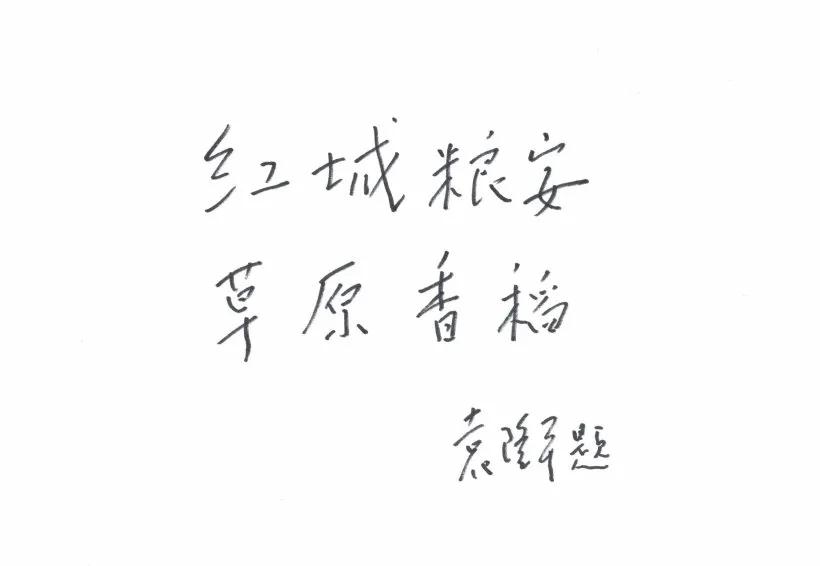 红城粮安
草原香稻
袁隆平题